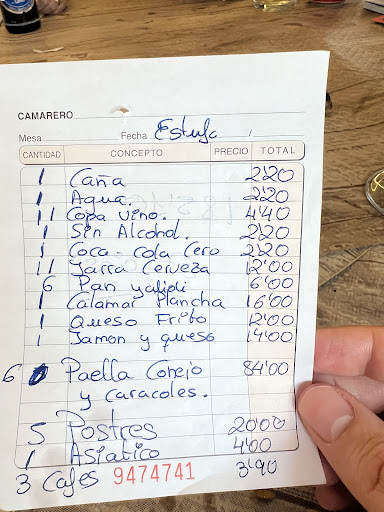 CAMARERO
Mesa Fecha Estufa /
CANTIDAD CONCEPTO PRECIO TOTAL
1 Caña 2'20
1 Agua. 2'20
11 Copa vino. 4'40
1 Sin Alcohol. 2'20
1 Coca-cola Cero 2'20
11 Jarra Cerveza 12'00
6 Pan yalioli 6'00
1 Calamar Plancha 16'00
1 Queso Frito 12'00
1 Jamon y queso 14'00
6 Paella Conejo 84'00
y caracoles.
5 Postres 20'00
1 Asiatico 4'00
3 Cafes 9474741 3'90